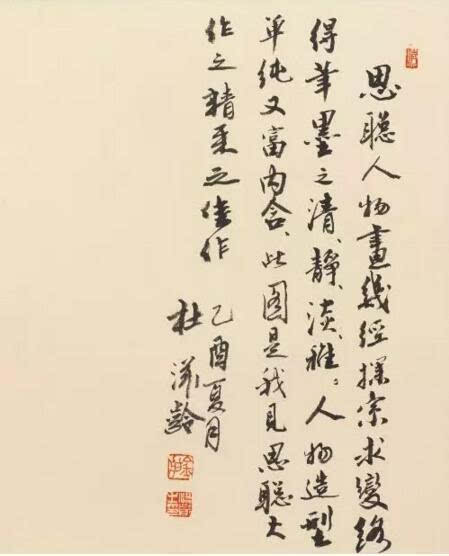 思聪人物畫幾經探宗求變终
得筆墨之清、静、淡、雅。人物造型
单纯又富内含、此图是我見思聪大
作之精采之佳作
乙酉夏月
杜滋齡